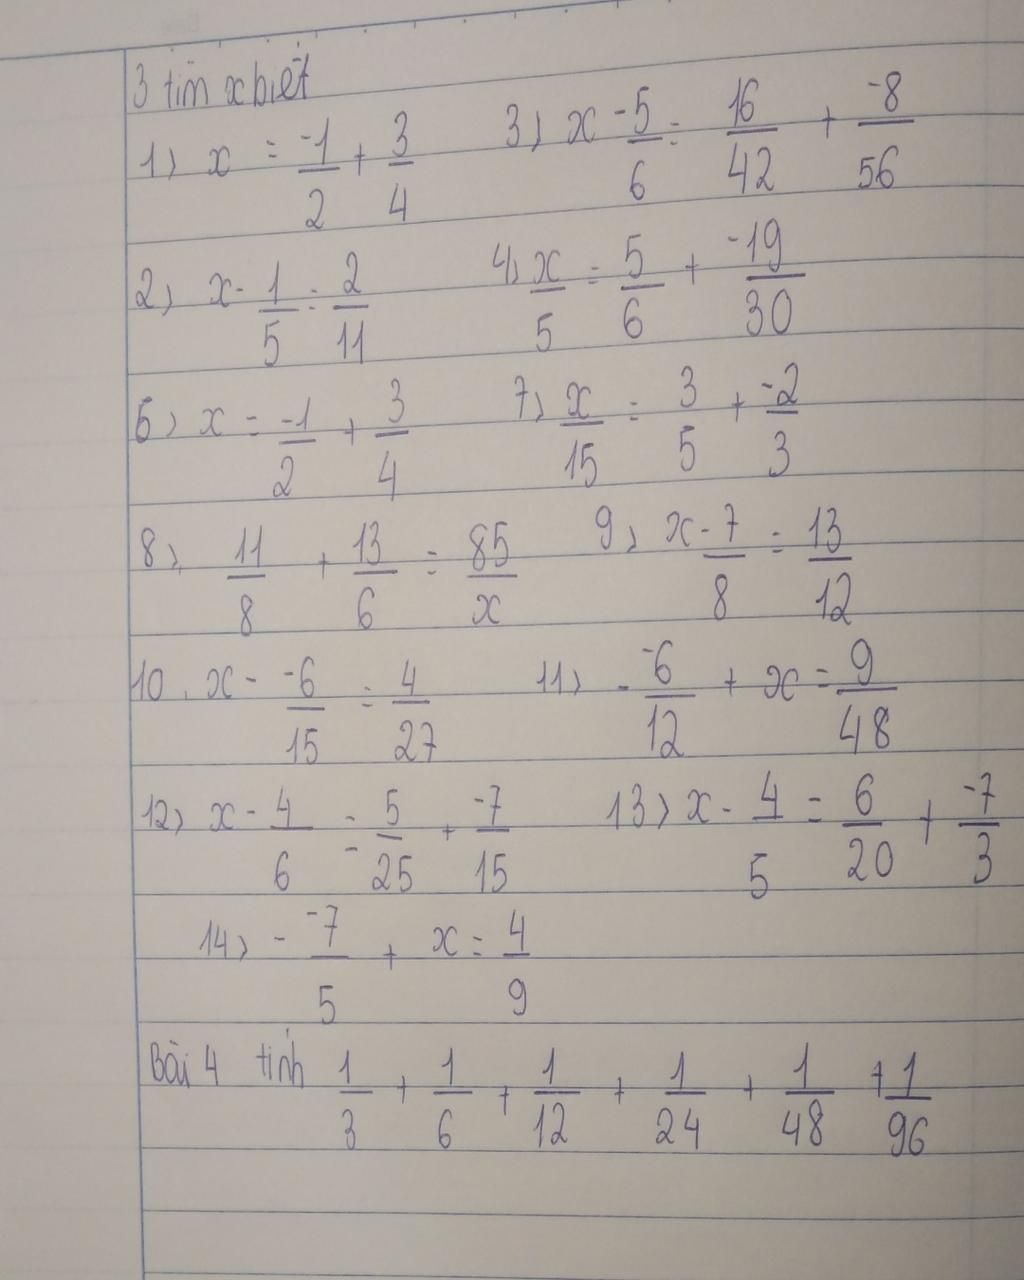 3 tìm x biết
1) x = -1/2 + 3/4 3) x - 5/6 = 16/42 + -8/56
2) x - 1/5 = 2/11 4) x/5 = 5/6 + -19/30
5) x = -1/2 + 3/4 7) x/15 = 3/5 + -2/3
8) 11/8 + 13/6 = 85/x 9) x - 7/8 = 13/12
10. x - -6/15 = 4/27 11) - -6/12 + x = 9/48
12) x - 4/6 = 5/25 + -7/15 13) x - 4/5 = 6/20 + -7/3
14) - -7/5 + x = 4/9
Bài 4 tính 1/3 + 1/6 + 1/12 + 1/24 + 1/48 + 1/96